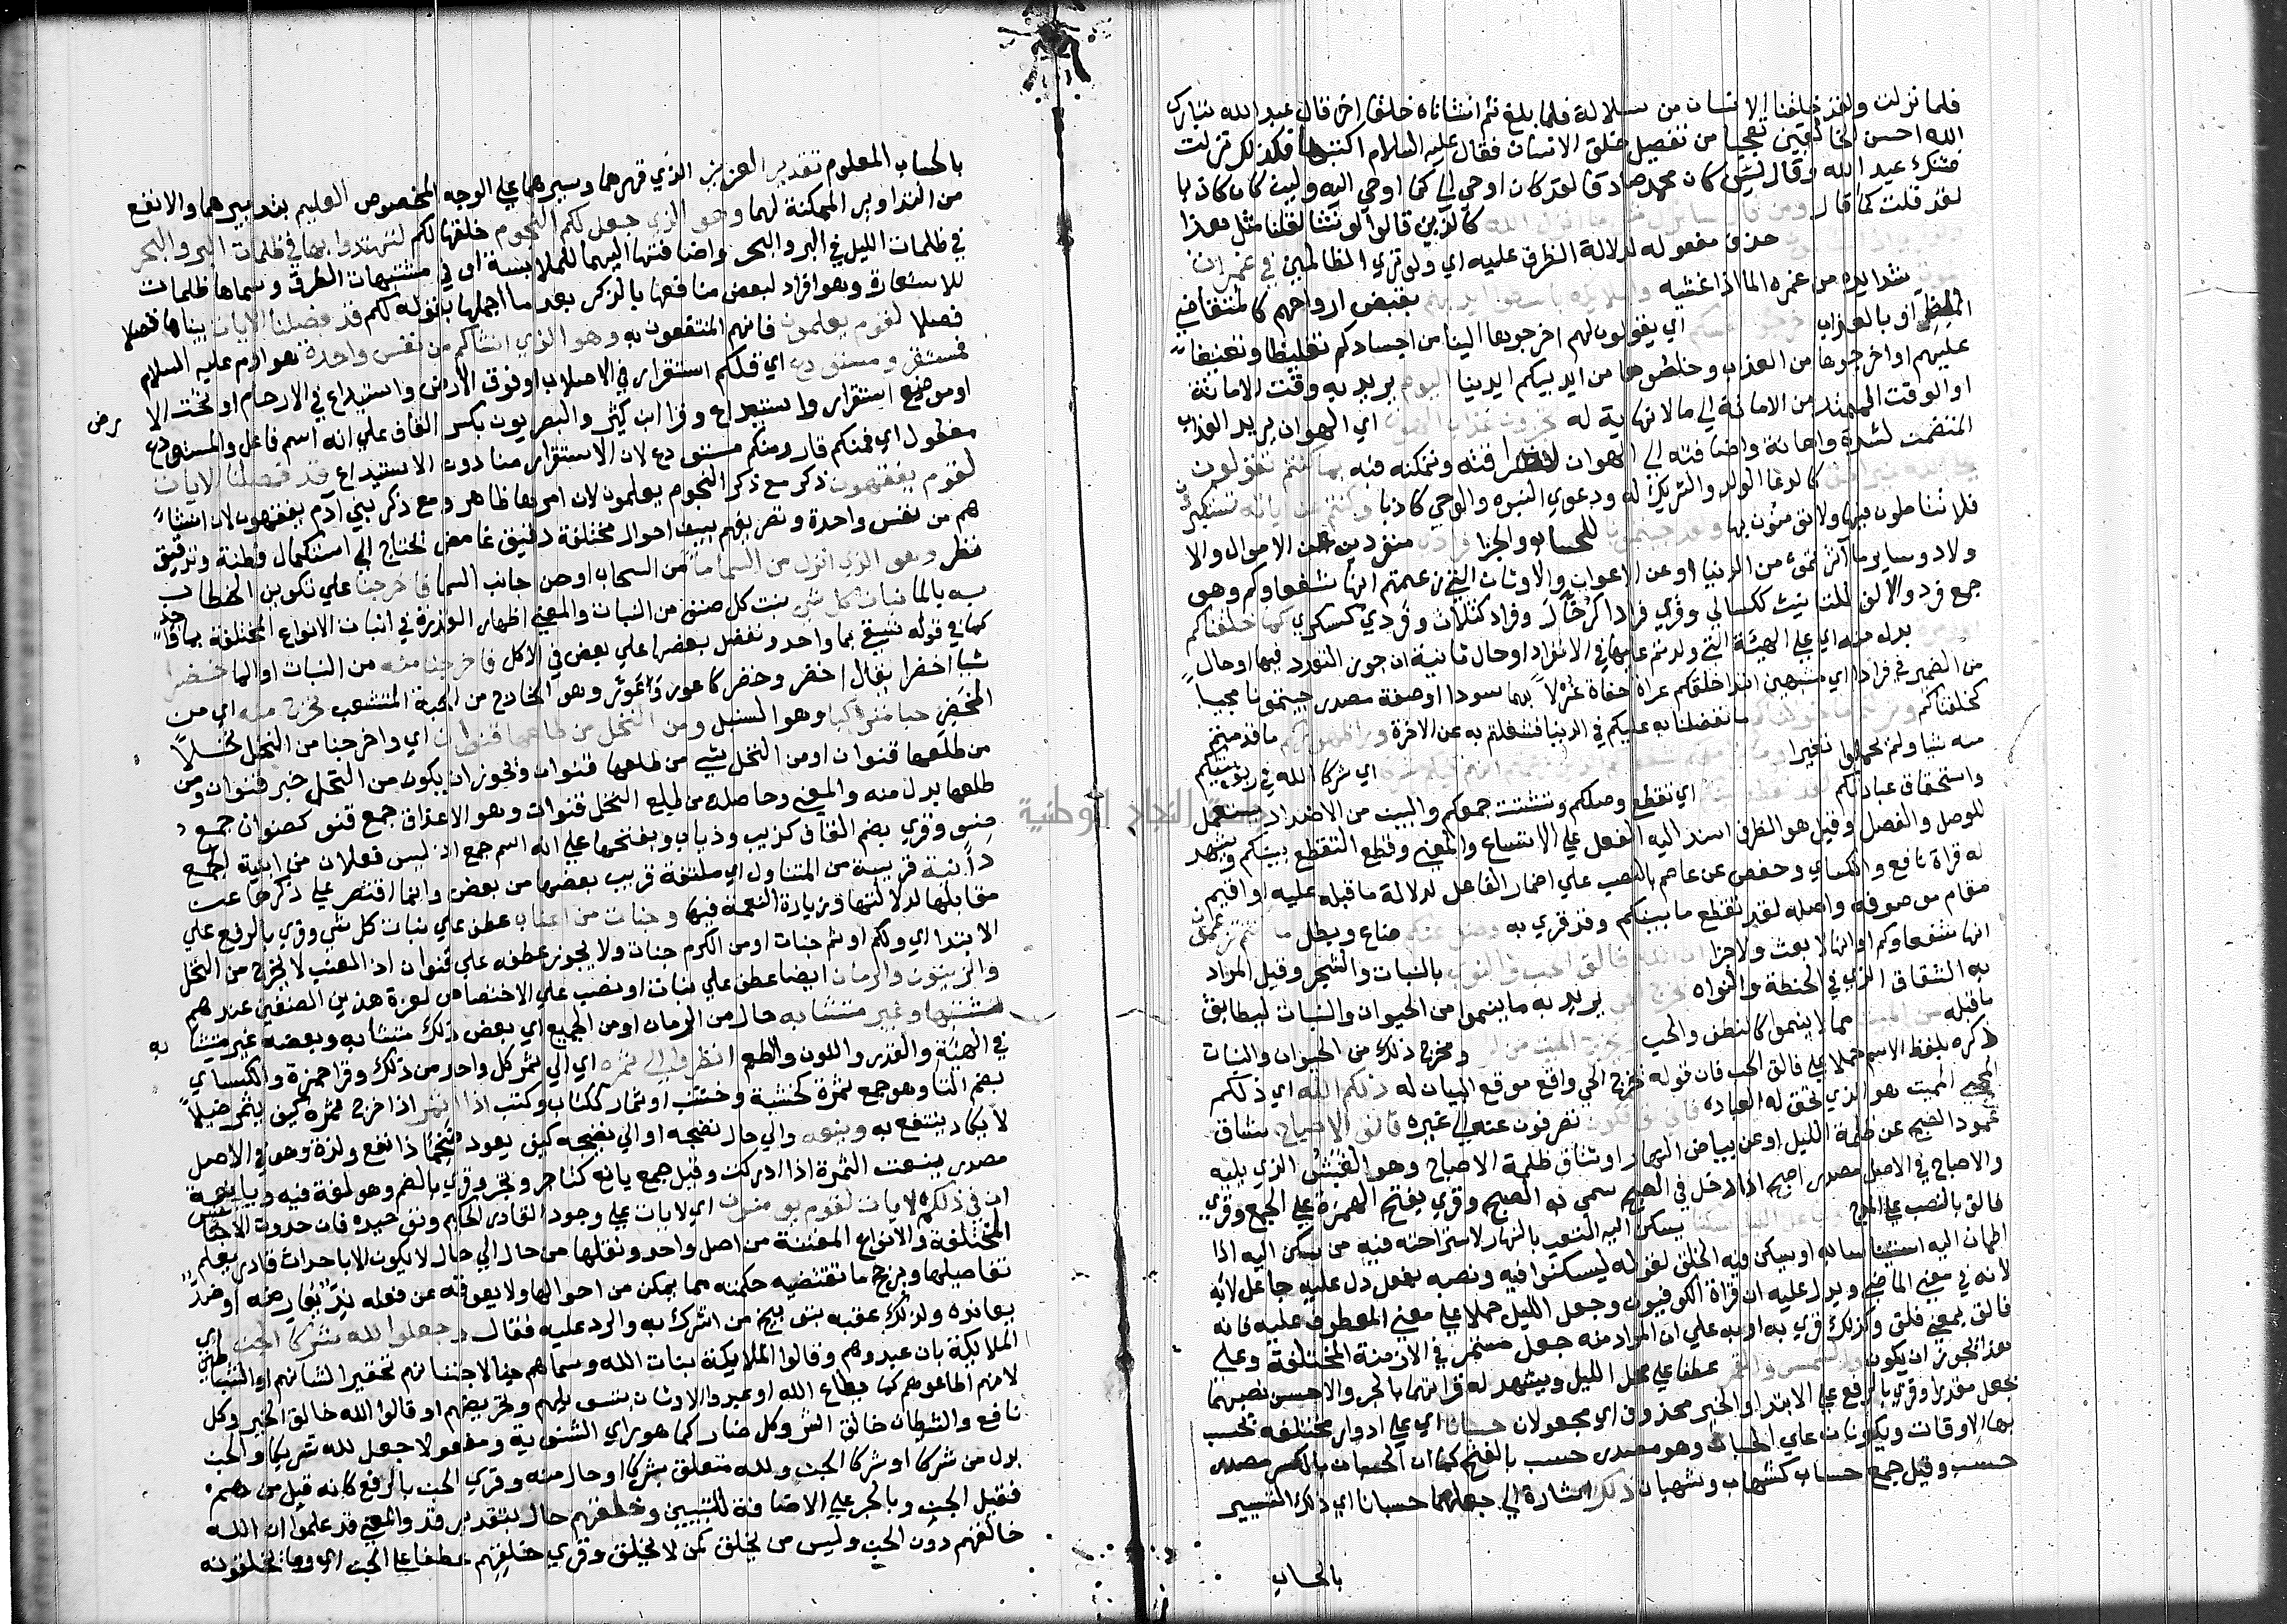 فلما نزلت ولقد خلقنا الانسان من سلالة فلما بلغ ثم انشاناه خلقا اخر قال عبد الله تبارك
الله احسن الخالقين تعجبا من تفصيل خلق الانسان فقال عليه السلام اكتبها فكذلك نزلت
فشك عبد الله وقال لئن كان محمد صادقا لقد كان اوحي الي كما اوحي اليه ولين كان كاذبا
لقد قلت كما قال ومن قال سانزل مثل ما انزل الله كالذين قالوا لو نشا لقلنا مثل هذا
حذف مفعوله لدلالة الظرف عليه اي ولو تري الظالمين في غمرات
شدايده من غمره الما اذا غشيه والملايكة باسطوا ايديهم بقبض ارواحهم كالمتقاضي
الملظ او بالعذاب اخرجوا انفسكم اي يقولون لهم اخرجوها الينا من اجسادكم تغليظا وتعنيفا
عليهم او اخرجوها من العذاب وخلصوها من ايديكم ايدينا اليوم يريد به وقت الاماتة
او الوقت الممتد من الاماتة الي ما لا نهاية له تجزون عذاب الهون اي الهوان يريد العذاب
المتضمن لشدة واهانة واضافته الي الهوان لعراقته وتمكنه فيه بما كنتم تقولون
كادعا الولد والشريك له ودعوي النبوه والوحي كاذبا وكنتم عن اياته تستكبرون
فلا تتاملون فيها ولا تؤمنون بها ولقد جيتمونا للحساب والجزا فرادي منفردين عن الاموال والا
ولاد وساير ما اثرتموه من الدنيا او عن الاعوان والاوثان التي زعمتم انها شفعاوكم وهو
جمع فرد والالف للتانيث ككسالي وقري فرادا كرخال وفراد كثلاث وفردي كسكري كما خلقناكم
بدل منه اي علي الهيئة التي ولدتم عليها في الانفراد او حال ثانية ان جوز التعدد فيها او حال
من الضمير في فرادا اي مشبهين ابتدا خلقكم عراة حفاة غرلا بهما سودا او صفة مصدر جيتمونا مجيا
كخلقناكم وتركتم ما خولناكم ما تفضلنا به عليكم في الدنيا فشغلتم به عن الاخرة ورا ظهوركم ما قدمتم
منه شيا ولم تحملوا نقيرا اي شركا لله في ربوبيتكم
واستحقاق عبادتكم لقد تقطع بينكم اي تقطع وصلكم وتشتت جمعكم والبين من الاضداد يستعمل
للوصل والفصل وقيل هو الظرف اسند اليه الفعل علي الاتساع والمعني وقع التقطع بينكم ويشهد
له قراة نافع والكساي وحفص عن عاصم بالنصب علي اضمار الفاعل لدلالة ما قبله عليه او اقيم
مقام موصوفه واصله لقد تقطع ما بينكم وقد قري به وضل عنكم ضاع وبطل ما كنتم تزعمون
انها شفعاوكم او انها لا بعث ولا جزا ان الله فالق الحب والنوي بالنبات والشجر وقيل المراد
به الشقاق الذي في الحنطة والنواة يخرج الحي يريد به ما ينموا من الحيوان والنبات ليطابق
ما قبله من الميت مما لا ينموا كالنطف والحب ومخرج الميت من الحي ومخرج ذلك من الحيوان والنبات
ذكره بلفظ الاسم حملا علي فالق الحب فان قوله يخرج الحي واقع موقع البيان له ذلكم الله اي ذلكم
المحيي المميت هو الذي يحق له العبادة فاني توفكون تصرفون عنه الي غيره فالق الاصباح شاق
عمود الصبح عن ظلمة الليل او عن بياض النهار او شاق ظلمة الاصباح وهو الغبش الذي يليه
والاصباح في الاصل مصدر اصبح اذا دخل في الصبح سمي به الصبح وقري بفتح الهمزة علي الجمع وقري
فالق بالنصب علي المدح وجاعل الليل سكنا يسكن اليه التعب بالنهار لاستراحته فيه من سكن اليه اذا
اطمان اليه استيناسا به او يسكن فيه الخلق لقوله ليسكنوا فيه ونصبه بفعل دل عليه جاعل لا به
لانه في معني الماضي ويدل عليه ان قراة الكوفيون وجعل الليل حملا علي معني المعطوف عليه فانه
فالق بمعني فلق وكذلك قري به او به علي ان المراد منه جعل مستمر في الازمنة المختلفة وعلي
هذا يجوز ان يكون والشمس والقمر عطفا علي محل الليل ويشهد له قراتهما بالجر والاحسن نصبهما
بجعل مقدرا وقري بالرفع علي الابتدا والخبر محذوف اي مجعولان حسبانا اي علي ادوار مختلفة تحسب
بها الاوقات ويكونان علي الحسبان وهو مصدر حسب بالفتح كما ان الحسبان بالكسر مصدر
حسب وقيل جمع حساب كشهاب وشهبان ذلك اشارة الي جعلهما حسبانا اي ذلك التسيير
بالحساب
بالحساب المعلوم تقدير العزيز الذي قهرهما وسيرهما علي الوجه المخصوص العليم بتدبيرهما والانفع
من التداوير الممكنة لهما وهو الذي جعل لكم النجوم خلقها لكم لتهتدوا بها في ظلمات البر والبحر
في ظلمات الليل في البر والبحر واضافتها اليهما للملابسة او في مشتبهات الطرق وسماها ظلمات
للاستعارة وهو افراد لبعض منافعها بالذكر بعد ما اجملها بقوله لكم قد فصلنا الايات بيناها فصلا
فصلا لقوم يعلمون فانهم المنتفعون به وهو الذي انشاكم من نفس واحدة هو ادم عليه السلام
فمستقر ومستودع اي فلكم استقرار في الاصلاب او فوق الارض واستيداع في الارحام او تحت الا
رض
او موضع استقرار واستيداع وقرا ابن كثير والبصريون بكسر القاف علي انه اسم فاعل والمستودع
مفعول اي فمنكم قار ومنكم مستودع لان الاستقرار منا دون الاستيداع قد فصلنا الايات
لقوم يفقهون ذكر مع ذكر النجوم يعلمون لان امرها ظاهر ومع ذكر بني آدم يفقهون لان انشا
هم من نفس واحدة وتصريفهم بين احوال مختلفة دقيق غامض يحتاج الي استكمال فطنة وتدقيق
نظر وهو الذي انزل من السما ماء من السحاب او من جانب السما فاخرجنا علي تكوين الخطاب
به بالما نبات كل شي نبت كل صنف من النبات والمعني اظهار القدرة في انبات الانواع المختلفة بما واحد
كما في قوله تسقي بما واحد ونفضل بعضها علي بعض في الاكل فاخرجنا منه من النبات او الما خضرا
شيا اخضر يقال اخضر وخضر كاعور وعور وهو الخارج من الحبة المتشعب نخرج منه اي من
الخضر حبا متراكبا وهو السنبل ومن النخل من طلعها قنوان اي واخرجنا من النخل نخلا
من طلعها قنوان او من النخل شي من طلعها قنوان ويجوز ان يكون من النخل خبر قنوان ومن
طلعها بدل منه والمعني وحاصلة من طلع النخل قنوان وهو الاعذاق جمع قنو كصنوان جمع
صنو وقري بضم القاف كذيب وذبان وبفتحها علي انه اسم جمع اذ ليس فعلان من ابنية الجمع
دانية قريبة من المتناول اي ملتفة قريب بعضها من بعض وانما اقتصر علي ذكرها عن
مقابلها لدلالتها وزيادة النعمة فيها وجنات من اعناب عطف علي نبات كل شي وقري بالرفع علي
الابتدا اي ولكم او ثم جنات او من الكرم جنات ولا يجوز عطفه علي قنوان اذ العنب لا يخرج من النخل
والزيتون والرمان ايضا عطف علي نبات او نصب علي الاختصاص لعزة هذين الصنفين عندهم
مشتبها وغير متشابه حال من الرمان او من الجميع اي بعض ذلك متشابه وبعضه غير متشا
به
في الهيئة والقدر واللون والطعم انظروا الي ثمره اي الي ثمر كل واحد من ذلك وقرا حمزة والكساي
بضم الثا وهو جمع ثمرة كخشبة وخشب او ثمار ككتاب وكتب اذا اثمر اذا اخرج ثمره كيف يثمر ضيلا
لا يكاد ينتفع به وينعه والي حال نضجه او الي نضجه كيف يعود ضخما ذا نفع ولذة وهو في الاصل
مصدر ينعت الثمرة اذا ادركت وقيل جمع يانع كتاجر وتجر وقري بالضم وهو لغة فيه ويانعه
ان في ذلكم لايات لقوم يومنون اي لايات علي وجود القادر الحكيم وتوحيده فان حدوث الاجناس
المختلفة والانواع المفننة من اصل واحد ونقلها من حال الي حال لا يكون الا باحداث قادر يعلم
تفاصيلها ويرجح ما تقتضيه حكمته مما يمكن من احوالها ولا يعوقه عن فعله ند يعارضه او ضد
يعانده ولذلك عقبه بتوبيخ من اشرك به والرد عليه فقال وجعلوا لله شركا الجن اي
الملايكة بان عبدوهم وقالوا الملايكة بنات الله وسماهم جنا لاجتنانهم تحقيرا لشانهم او الشياطين
لانهم اطاعوهم كما يطاع الله او عبدوا الاوثان بتسويلهم وتحريضهم او قالوا الله خالق الخير وكل
نافع والشيطان خالق الشر وكل ضار كما هو راي الثنوية ومفعولا جعل لله شريكا والجن
بدل من شركا او شركا الجن ولله متعلق بشركا او حال منه وقري الجن بالرفع كانه قيل من هم
فقيل الجن وبالجر علي الاضافة للتبيين وخلقهم حال بتقدير قد والمعني قد علموا ان الله
خالقهم دون الجن وليس من يخلق كمن لا يخلق وقري خلقهم عطفا علي الجن اي وما يخلقونه